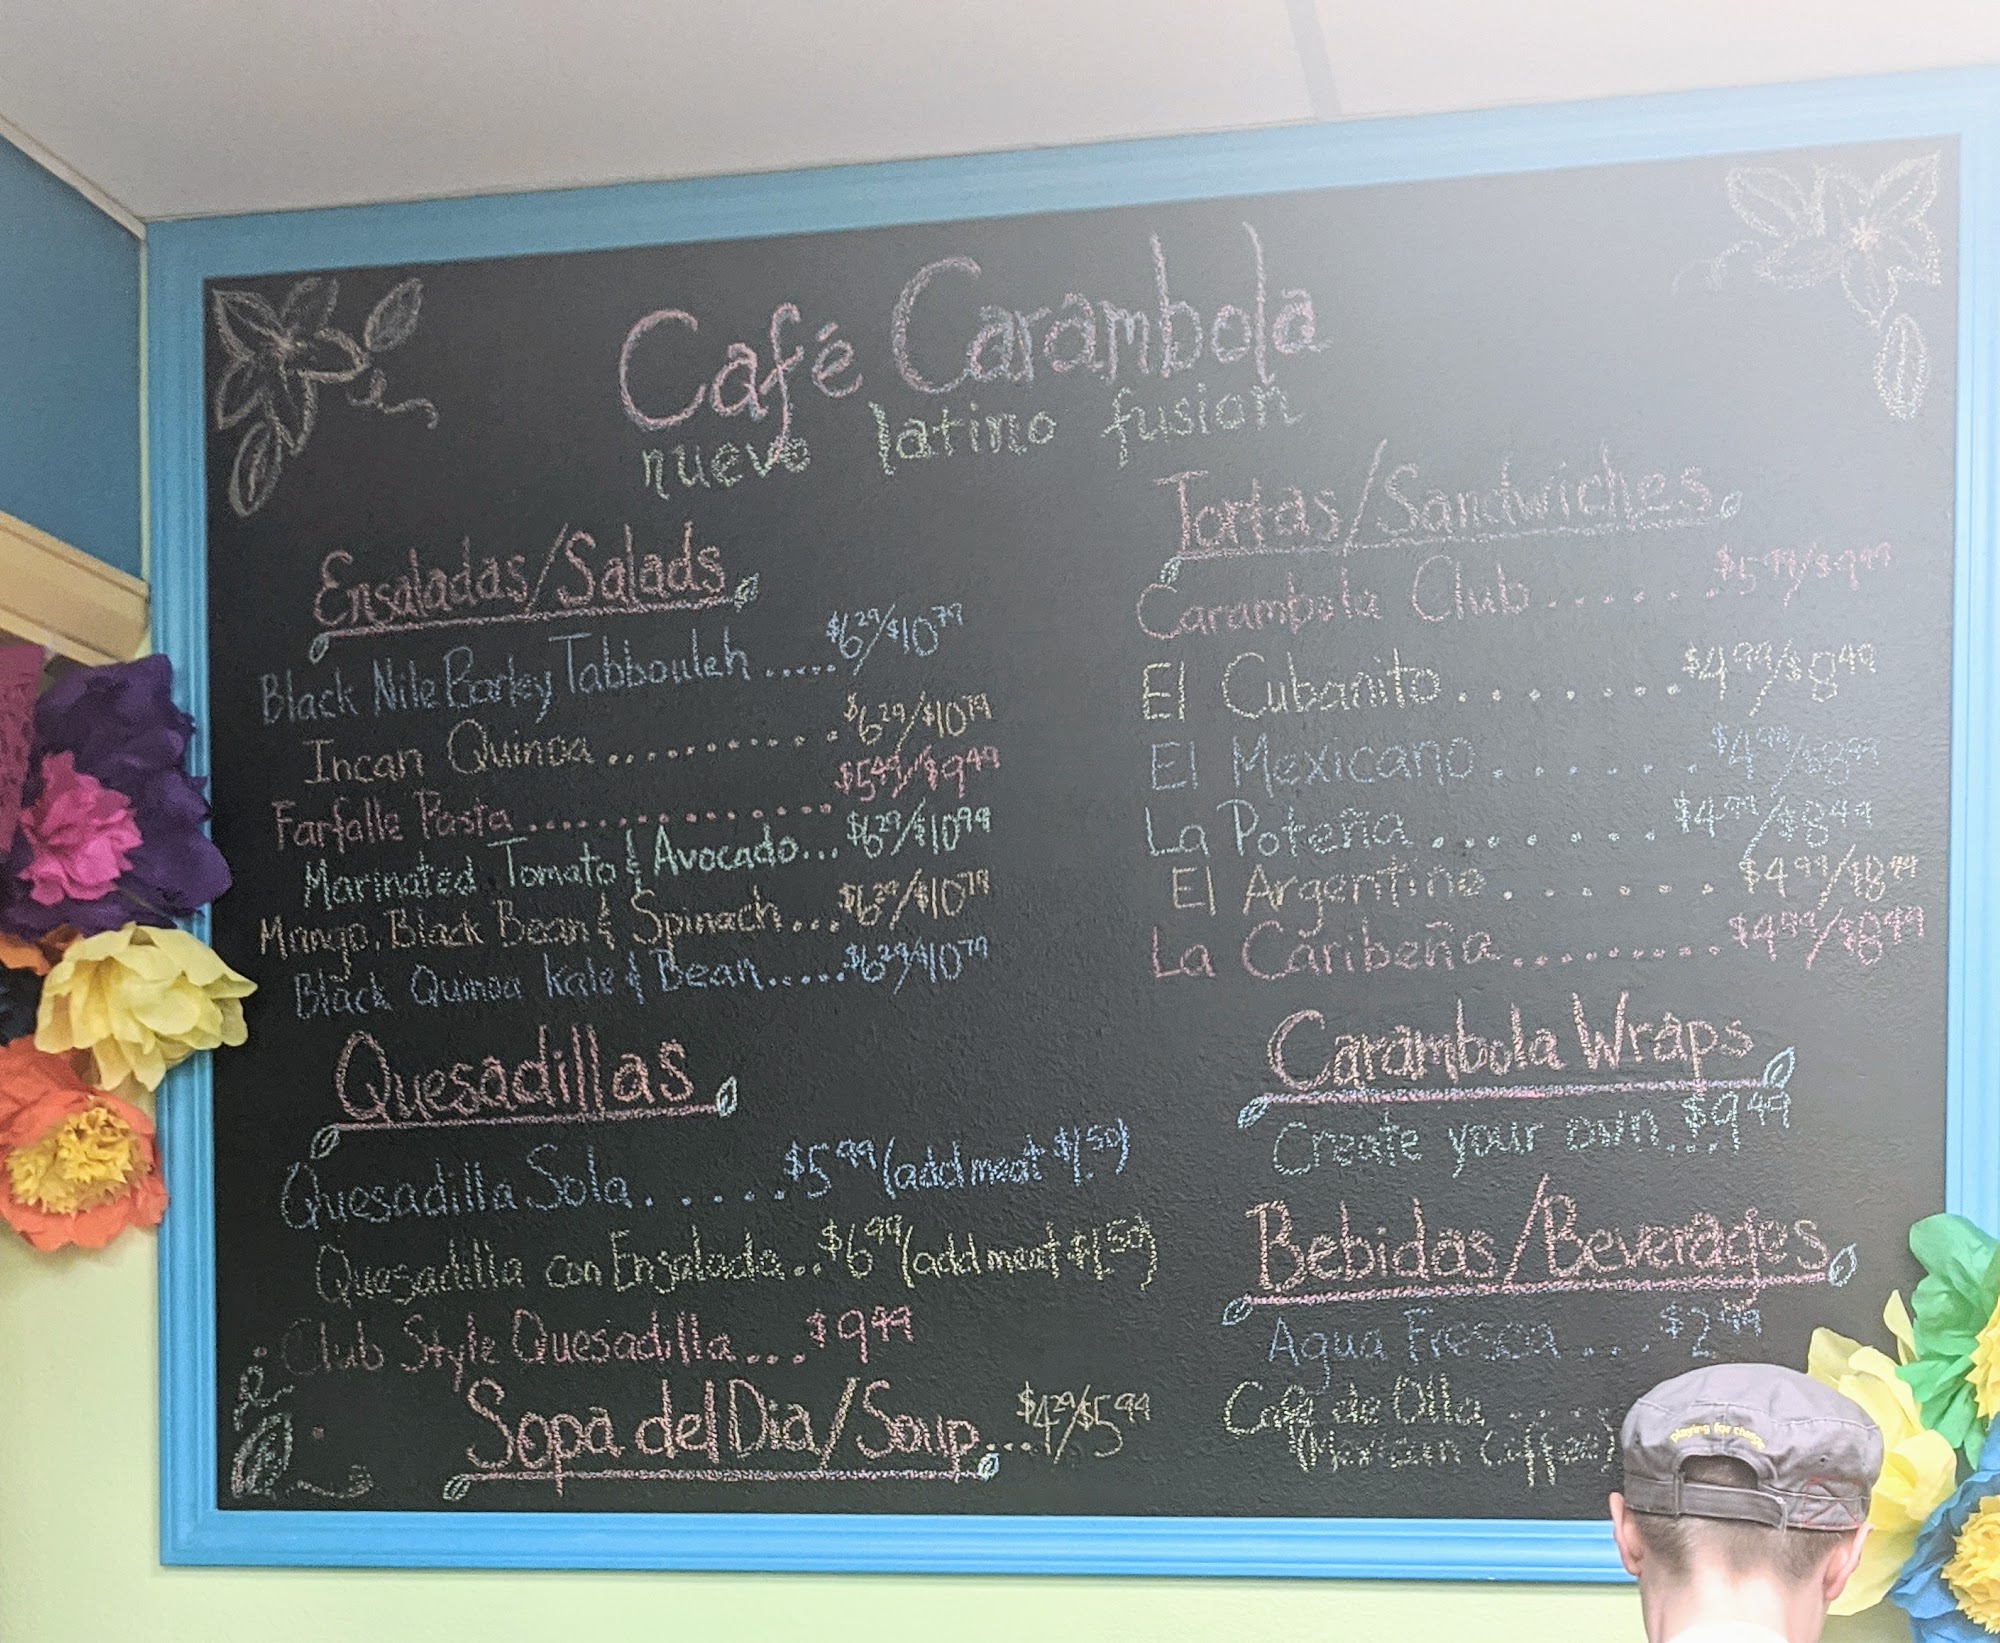 Café Carambola
nuevo latino fusion
Ensaladas/Salads
Black Nile Barley Tabbouleh.....$6²⁹/$10⁷⁹
Incan Quinoa............$6²⁹/$10⁷⁹
Farfalle Pasta..............$5⁴⁹/$9⁴⁹
Marinated Tomato & Avocado...$6²⁹/$10⁹⁹
Mango, Black Bean & Spinach...$6²⁹/$10⁷⁹
Black Quinoa Kale & Bean.....$6²⁹/$10⁷⁹
Quesadillas
Quesadilla Sola......$5⁹⁹(add meat $1⁵⁰)
Quesadilla con Ensalada..$6⁹⁹(add meat $1⁵⁰)
Club Style Quesadilla...$9⁴⁹
Sopa del Dia/Soup...$4²⁹/$5⁹⁹
Tortas/Sandwiches
Carambola Club.......$5⁹⁹/$9⁹⁹
El Cubanito........$4⁹⁹/$8⁴⁹
El Mexicano.......$4⁹⁹
La Poteña........$4⁹⁹/$8⁴⁹
El Argentino.......$4⁹⁹
La Caribeña.........$4⁹⁹/$8⁴⁹
Carambola Wraps
Create your own...$9⁴⁹
Bebidas/Beverages
Agua Fresca....$2⁴⁹
Café de Olla
(Mexican Coffee)
playing for change